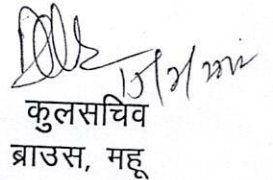 कुलसचिव
ब्राउस, महू